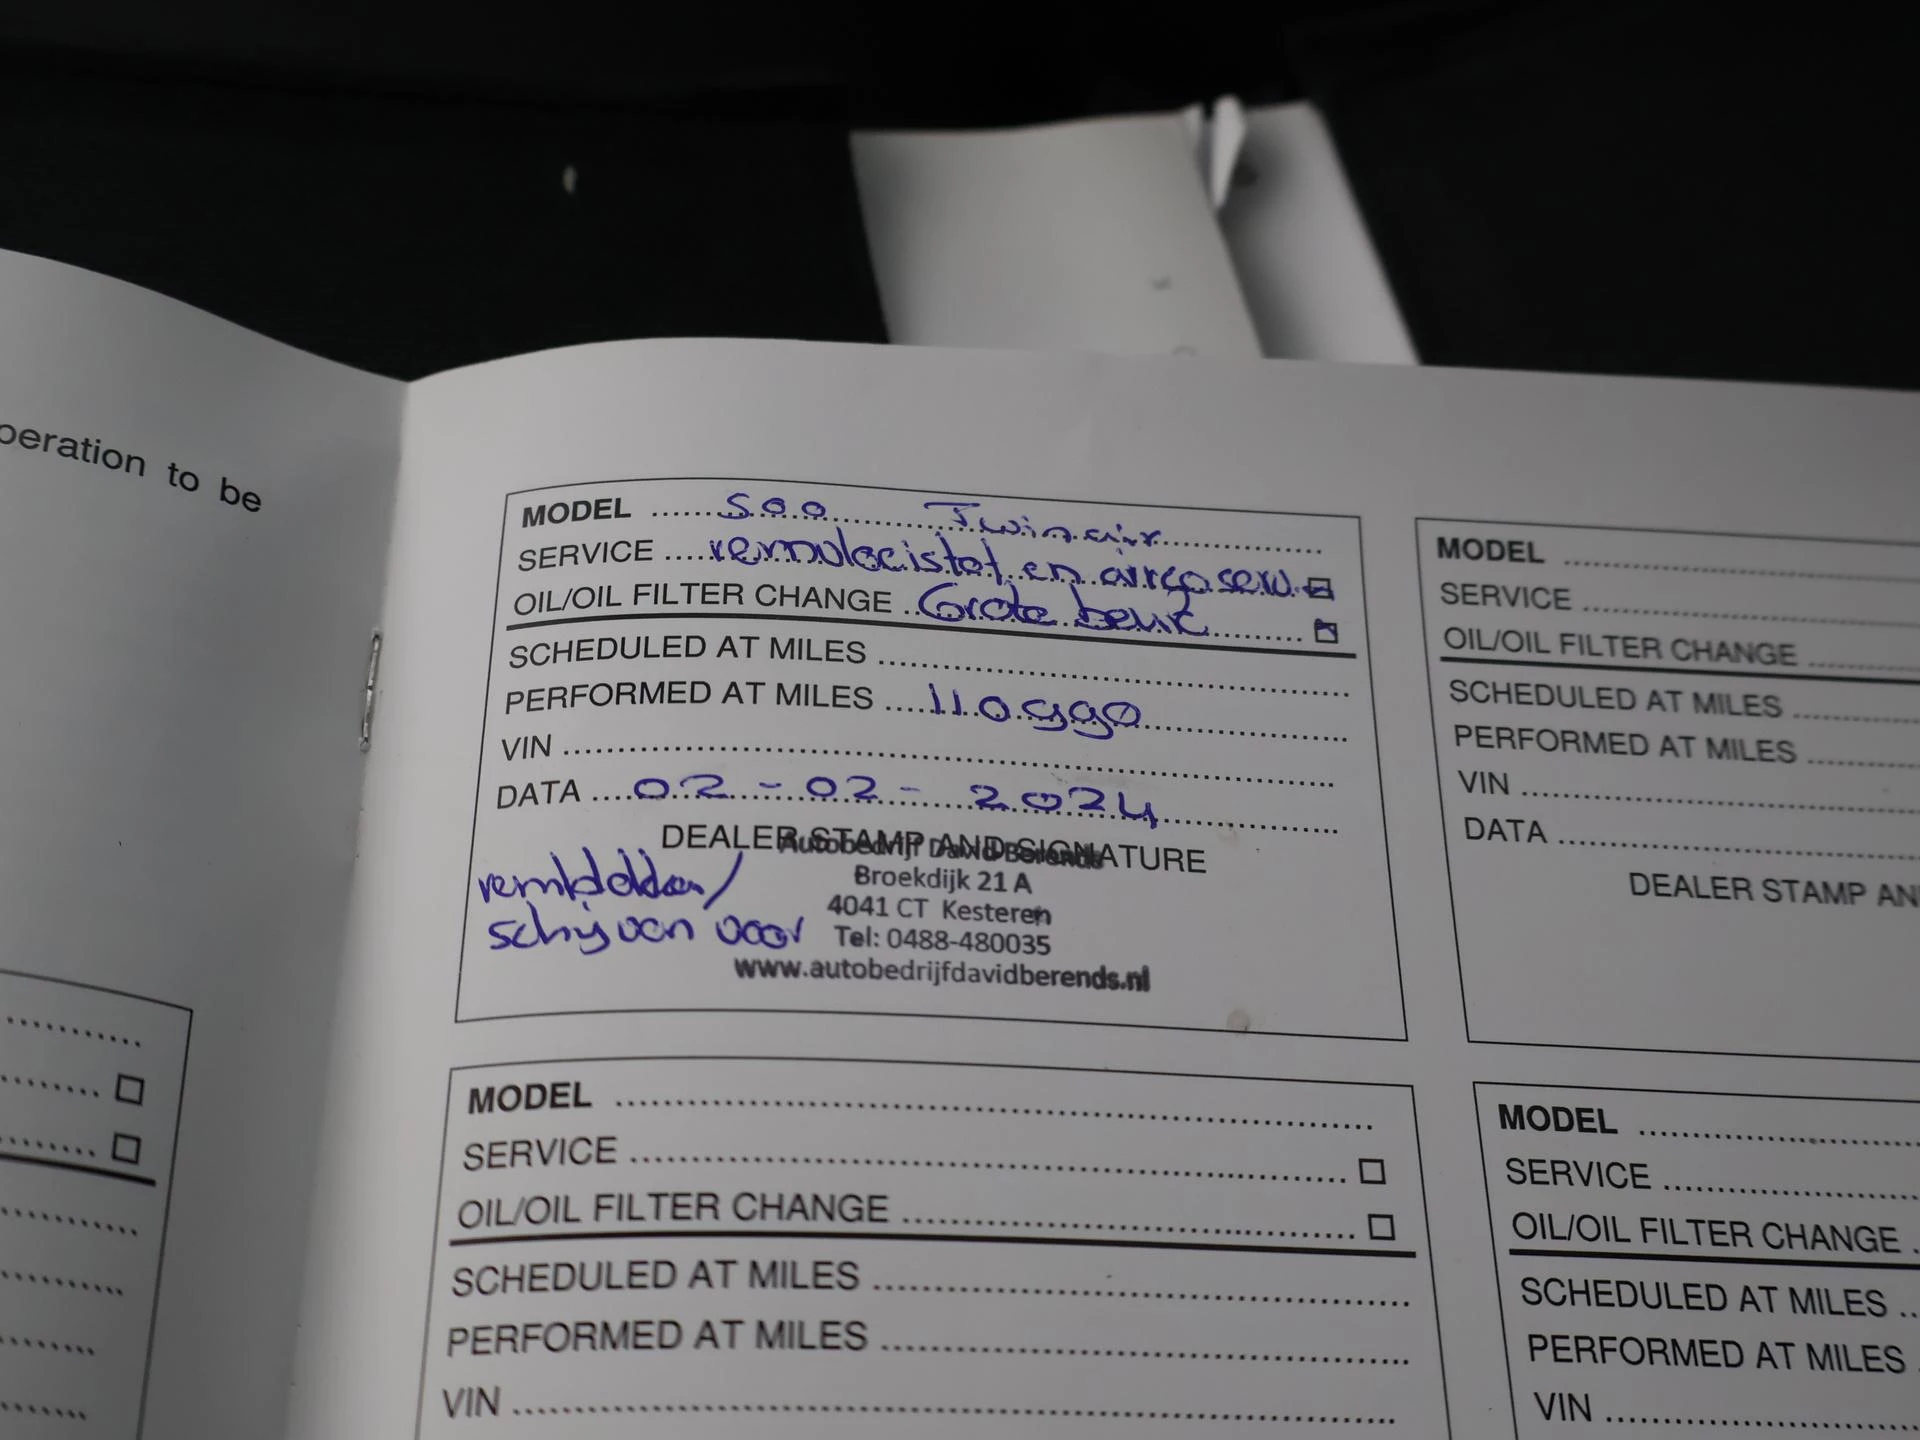 peration to be
MODEL 500 Twinair
SERVICE remvloeistof en aircoserv.
OIL/OIL FILTER CHANGE Grote beurt
SCHEDULED AT MILES
PERFORMED AT MILES 110990
VIN
DATA 02-02-2024
DEALER STAMP AND SIGNATURE
Autobedrijf David Berends
Broekdijk 21 A
4041 CT Kesteren
Tel: 0488-480035
www.autobedrijfdavidberends.nl
remblokken/
schijven voor
MODEL
SERVICE
OIL/OIL FILTER CHANGE
SCHEDULED AT MILES
PERFORMED AT MILES
VIN
DATA
DEALER STAMP AN
MODEL
SERVICE
OIL/OIL FILTER CHANGE
SCHEDULED AT MILES
PERFORMED AT MILES
VIN
MODEL
SERVICE
OIL/OIL FILTER CHANGE
SCHEDULED AT MILES
PERFORMED AT MILES
VIN